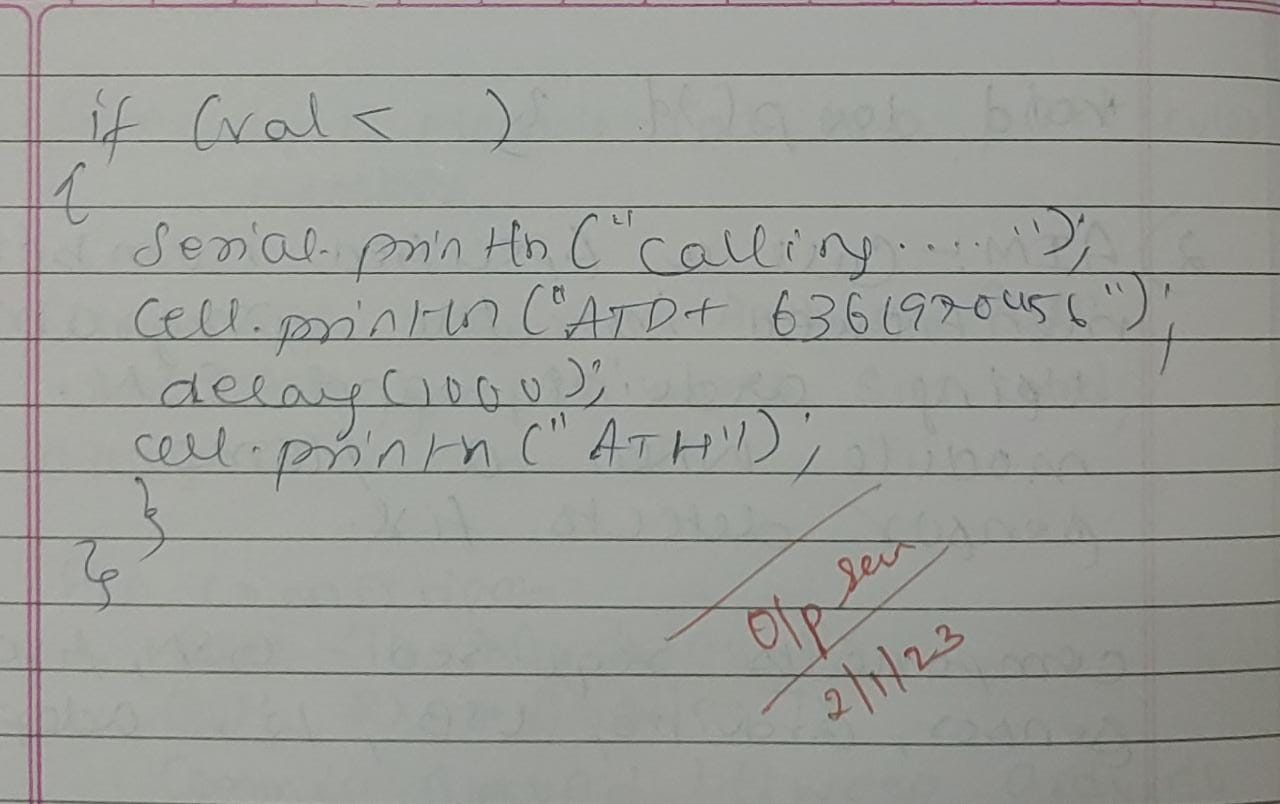 if (val <    )
{
Serial.println ("calling.....");
Cell.println ("ATD+ 6361970456");
delay(1000);
cell.println ("ATH");
}
}
O/p seen
2/1/23